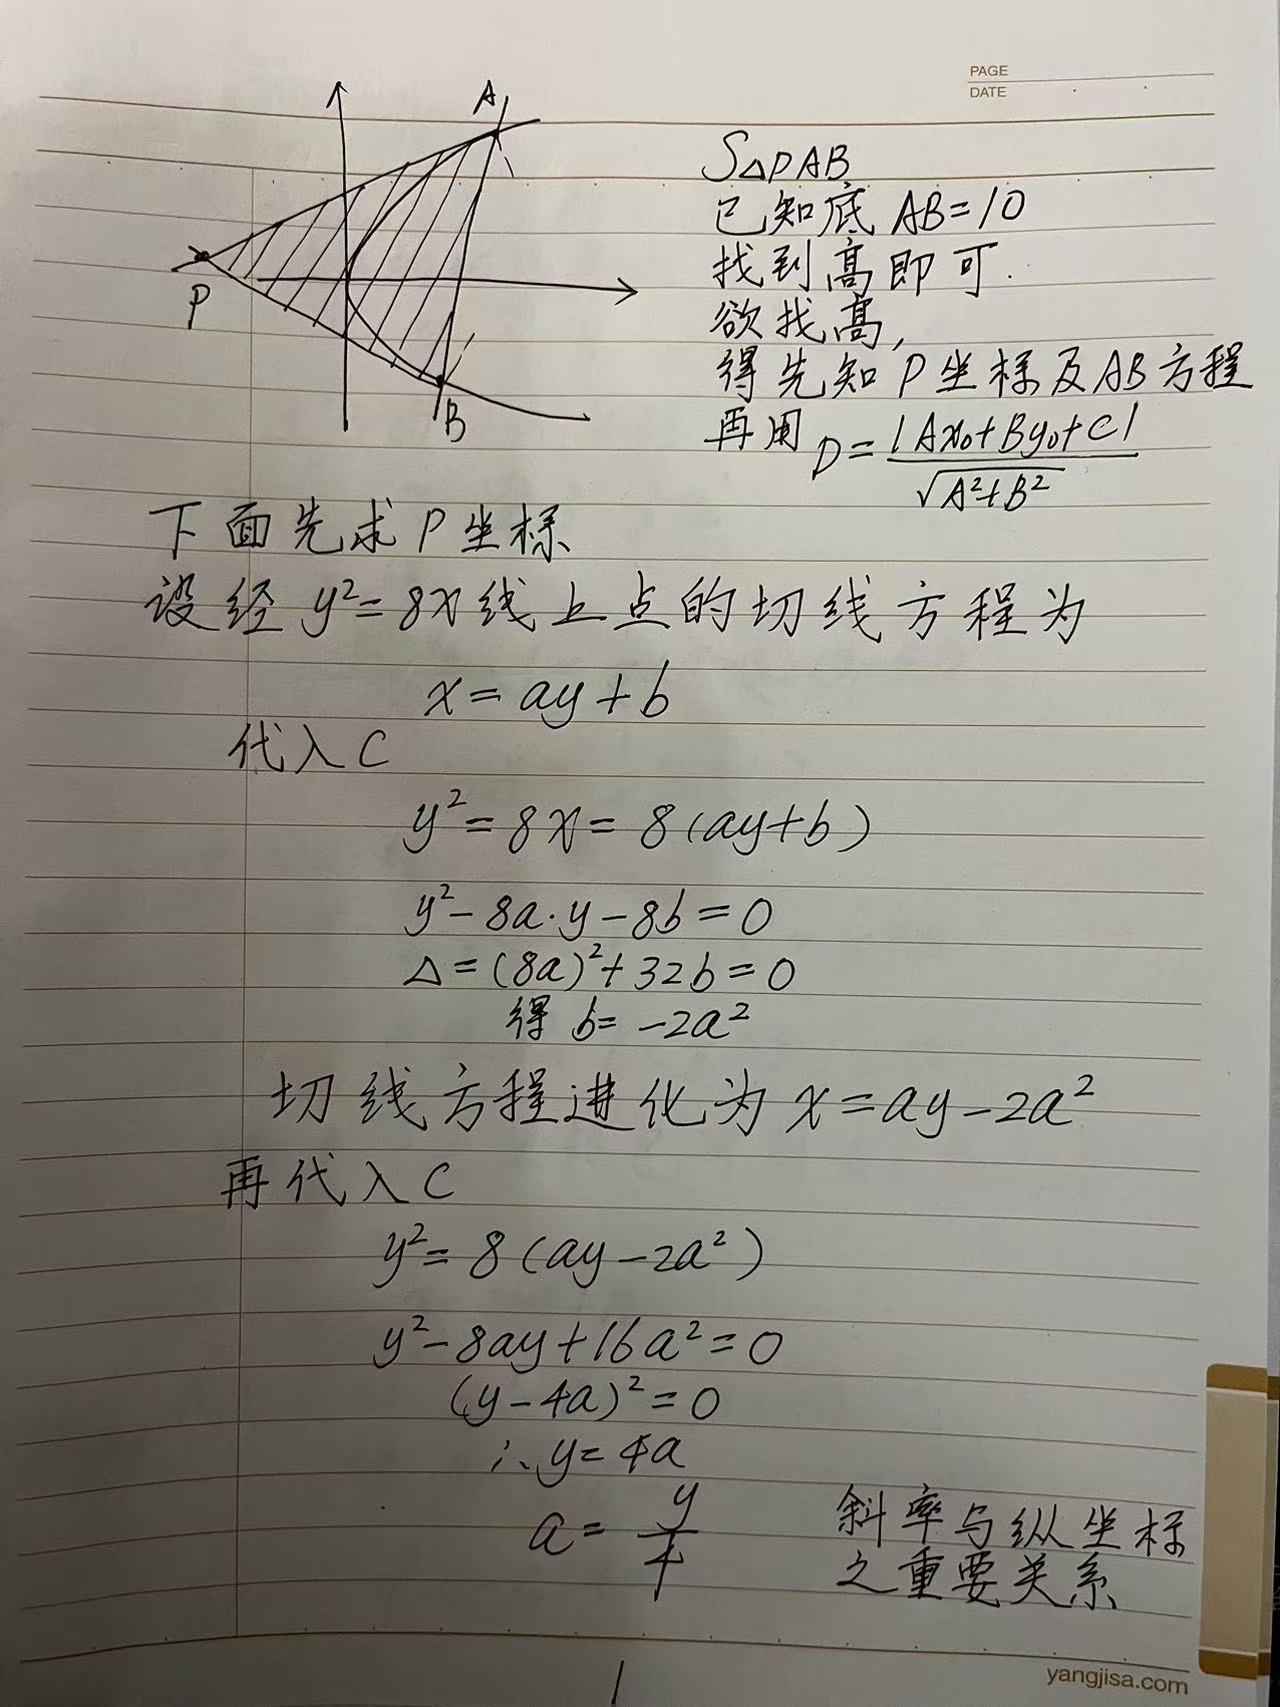 PAGE
DATE
A
P
B
S△PAB
已知底 AB=10
找到高即可.
欲找高,
得先知 P坐标及AB方程
再用 D=|Ax₀+By₀+C|/√A²+B²
下面先求P坐标
设经 y²=8x线上点的切线方程为
x=ay+b
代入C
y²=8x=8(ay+b)
y²-8a·y-8b=0
△=(8a)²+32b=0
得 b=-2a²
切线方程进化为 x=ay-2a²
再代入C
y²=8(ay-2a²)
y²-8ay+16a²=0
(y-4a)²=0
∴y=4a
a=y/4
斜率与纵坐标
之重要关系
1
yangjisa.com